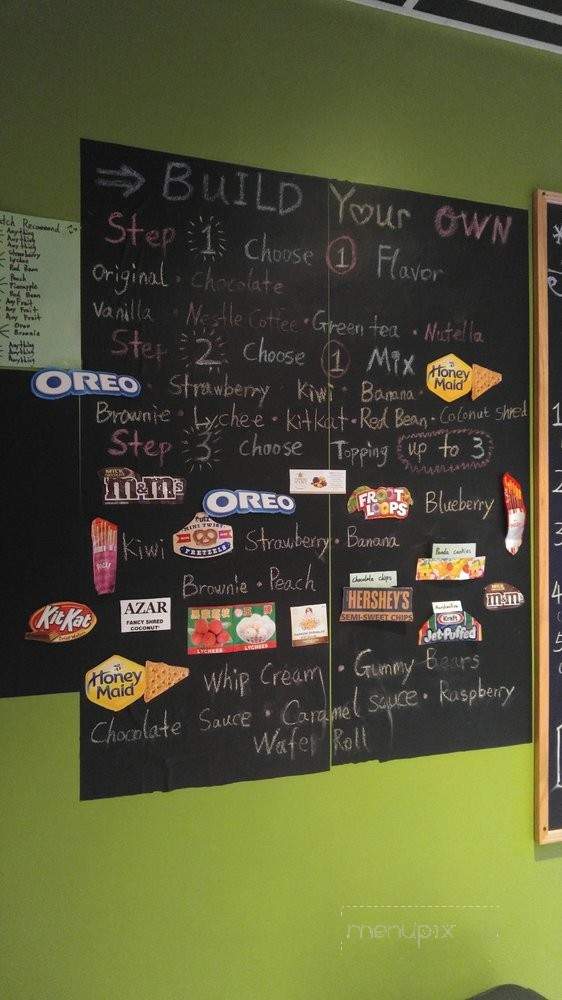 ⇒ BUILD Your OWN
Step 1 Choose 1 Flavor
Original · Chocolate
Vanilla · Nestle Coffee · Green tea · Nutella
Step 2 Choose 1 Mix
HONEY MAID
OREO · Strawberry Kiwi · Banana
Brownie · Lychee · Kitkat · Red Bean · Coconut shred
Step 3 Choose Topping up to 3
MILK CHOCOLATE m&m's
OREO
FROOT LOOPS
Blueberry
Kiwi
MINI TWIST PRETZELS
Strawberry · Banana
Panda cookies
Brownie · Peach
Chocolate chips
HERSHEY'S
SEMI-SWEET CHIPS
MILK m&m's
Kit Kat
AZAR
FANCY SHRED COCONUT
LYCHEES LYCHEES
Kraft
Jet-Puffed
HONEY MAID
Whip Cream · Gummy Bears
Chocolate Sauce · Caramel sauce · Raspberry
Wafer Roll
Recommend
Anything
Anything
Anything
Strawberry
Lychee
Red Bean
Peach
Pineapple
Red Bean
Any Fruit
Any Fruit
Any Fruit
Oreo
Brownie
Anything
Anything
Anything
menupix